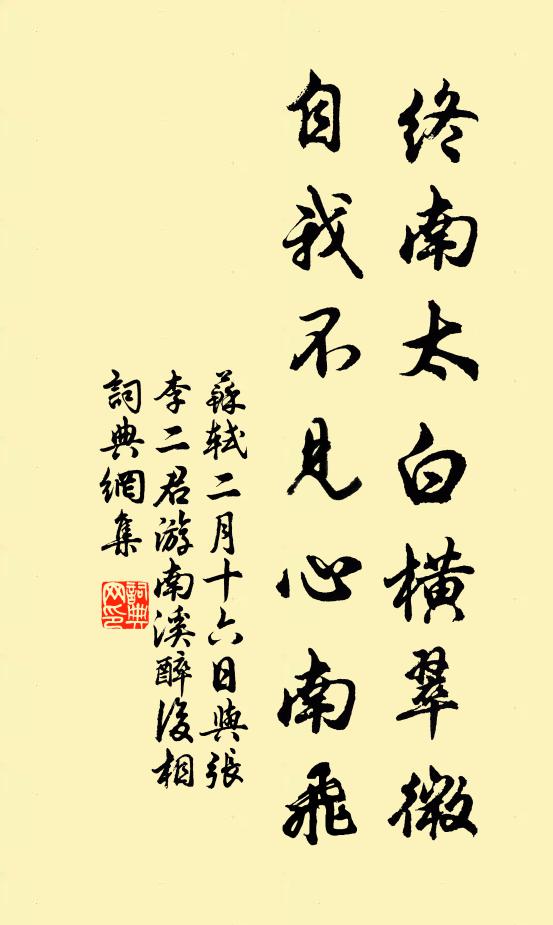 終南太白橫翠微
自我不見心南飛
蘇軾二月十六日與張
李二君游南溪醉後相
詞典網集
詞典
网印